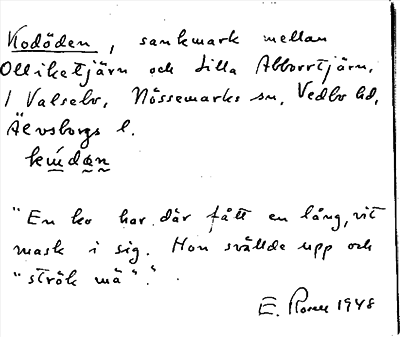 Kodöden, sankmark mellan
Olliketjärn och Lilla Abborrtjärn,
/ Valsebo, Nössemarks sn, Vedbo hd,
Älvsborgs l.
"En ko har där fått en lång, vit
mask i sig. Hon svällde upp och
"strök mä"."
E. 1948